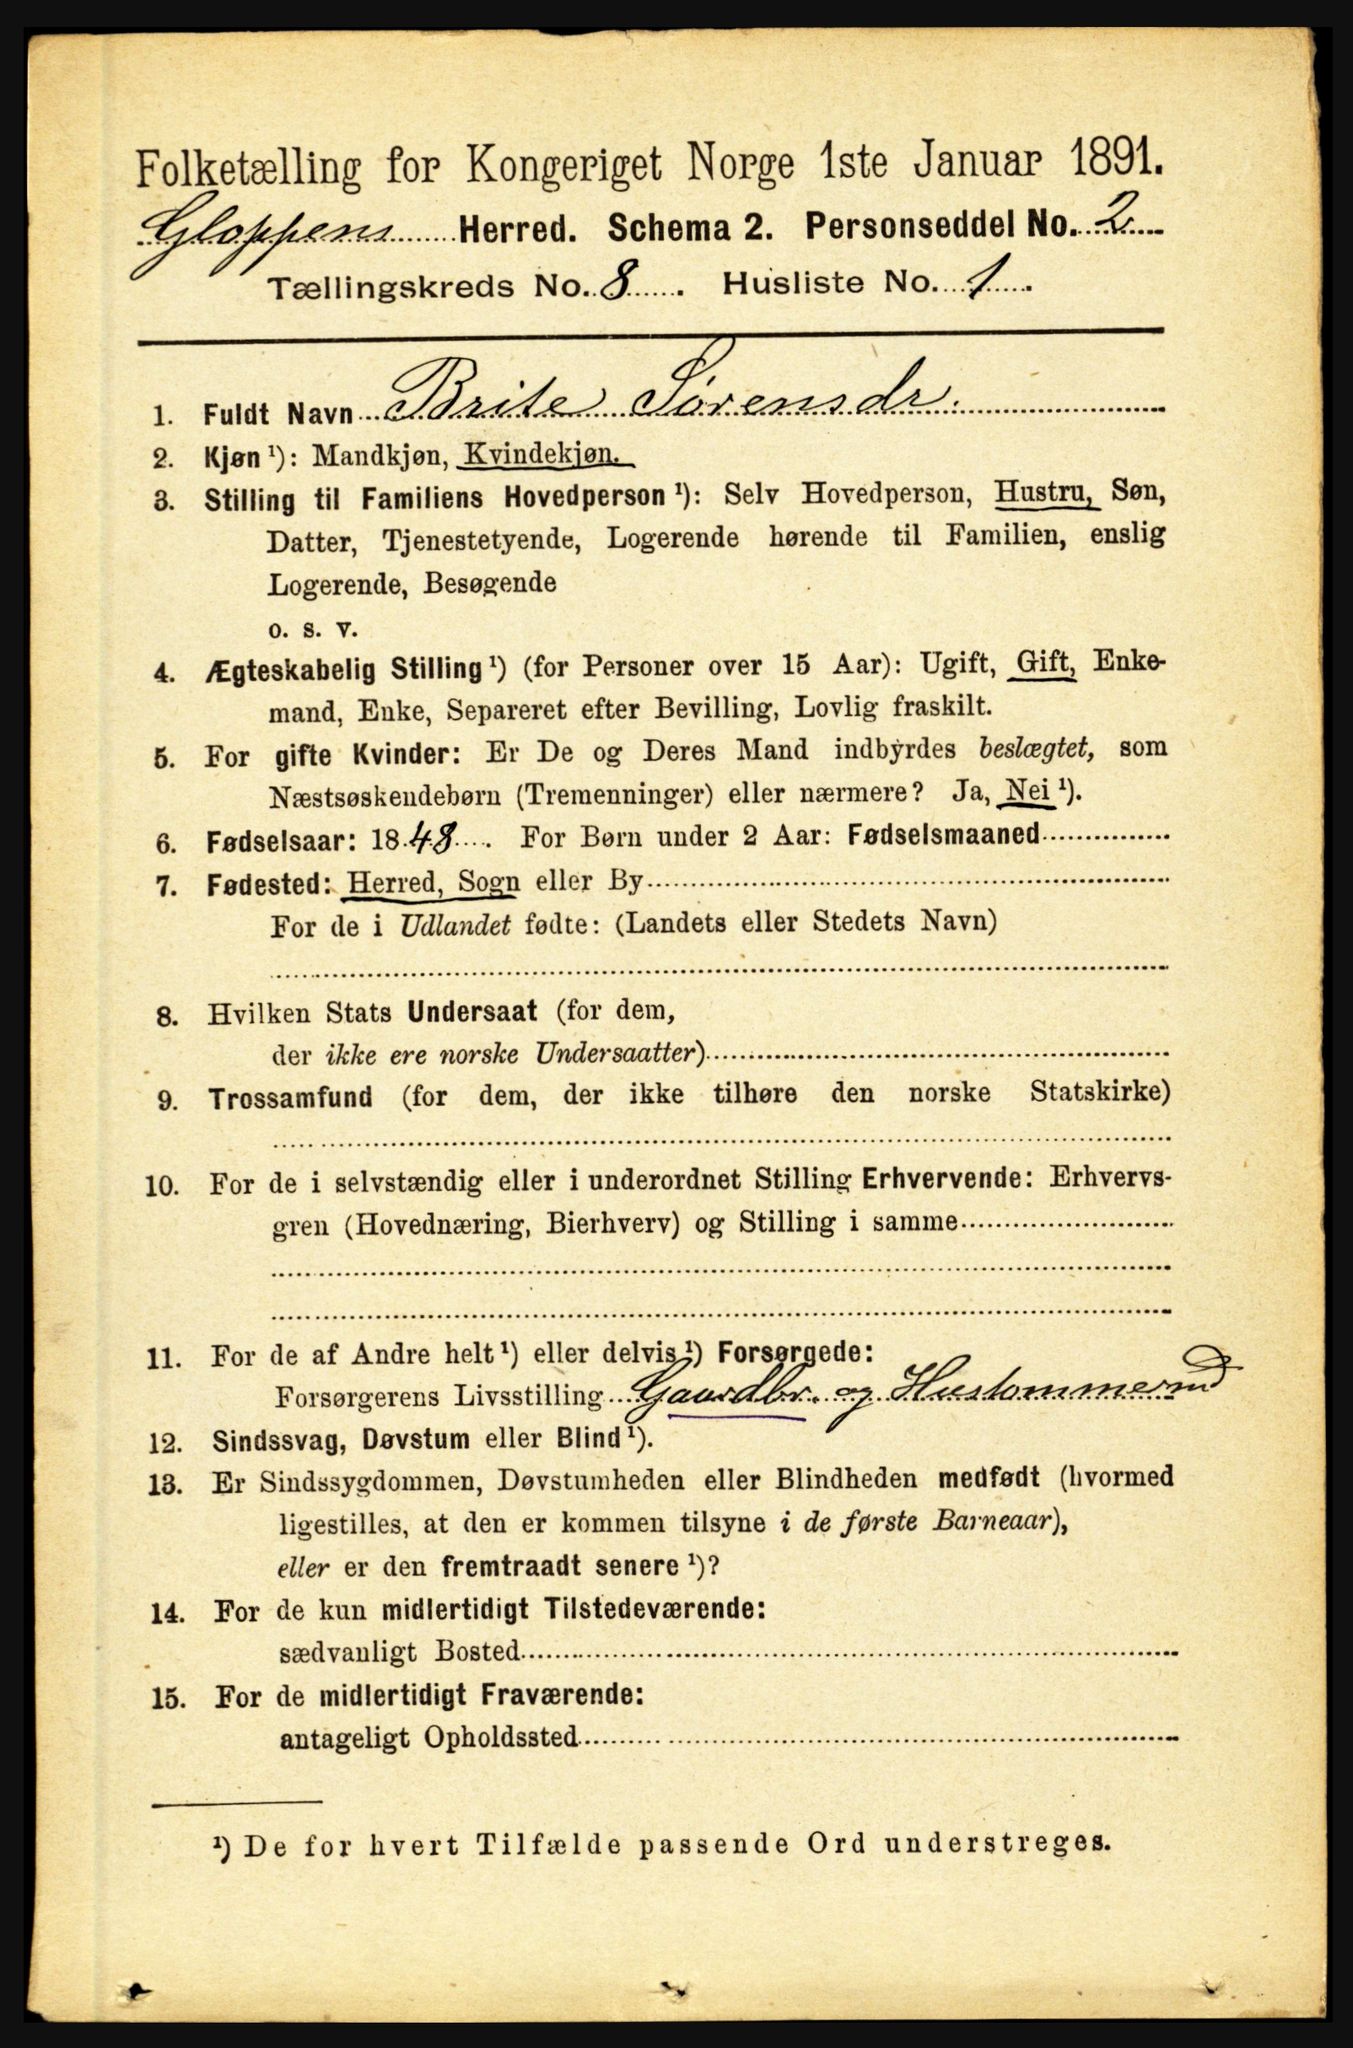 Folketælling for Kongeriget Norge 1ste Januar 1891.
Gloppens Herred. Schema 2. Personseddel No. 2
Tællingskreds No. 8. Husliste No. 1.
1. Fuldt Navn Brite Sørensdr.
2. Kjøn ¹): Mandkjøn, Kvindekjøn.
3. Stilling til Familiens Hovedperson ¹): Selv Hovedperson, Hustru, Søn,
Datter, Tjenestetyende, Logerende hørende til Familien, enslig
Logerende, Besøgende
o. s. v.
4. Ægteskabelig Stilling ¹) (for Personer over 15 Aar): Ugift, Gift, Enke-
mand, Enke, Separeret efter Bevilling, Lovlig fraskilt.
5. For gifte Kvinder: Er De og Deres Mand indbyrdes beslægtet, som
Næstsøskendebørn (Tremenninger) eller nærmere? Ja, Nei ¹).
6. Fødselsaar: 1848. For Børn under 2 Aar: Fødselsmaaned
7. Fødested: Herred, Sogn eller By
For de i Udlandet fødte: (Landets eller Stedets Navn)
8. Hvilken Stats Undersaat (for dem,
der ikke ere norske Undersaatter)
9. Trossamfund (for dem, der ikke tilhøre den norske Statskirke)
10. For de i selvstændig eller i underordnet Stilling Erhvervende: Erhvervs-
gren (Hovednæring, Bierhverv) og Stilling i samme
11. For de af Andre helt ¹) eller delvis ¹) Forsørgede:
Forsørgerens Livsstilling Gaardbr. og Hustommermd
12. Sindssvag, Døvstum eller Blind ¹).
13. Er Sindssygdommen, Døvstumheden eller Blindheden medfødt (hvormed
ligestilles, at den er kommen tilsyne i de første Barneaar),
eller er den fremtraadt senere ¹)?
14. For de kun midlertidigt Tilstedeværende:
sædvanligt Bosted
15. For de midlertidigt Fraværende:
antageligt Opholdssted
¹) De for hvert Tilfælde passende Ord understreges.